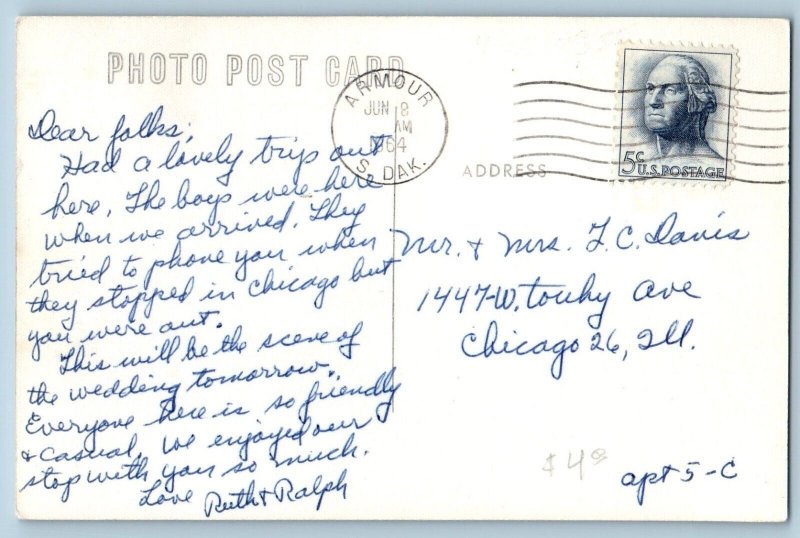 PHOTO POST CARD
ARMOUR
JUN 8
AM
1964
S. DAK.
5c U.S. POSTAGE
ADDRESS
Dear folks;
Had a lovely trip out
here. The boys were here
when we arrived. They
tried to phone you when
they stopped in Chicago but
you were out.
This will be the scene of
the wedding tomorrow.
Everyone here is so friendly
& casual. We enjoyed our
stop with you so much.
Love Ruth & Ralph
Mr. & Mrs. F. C. Davis
1447-W. Touhy Ave
Chicago 26, Ill.
apt 5-C
$4.00